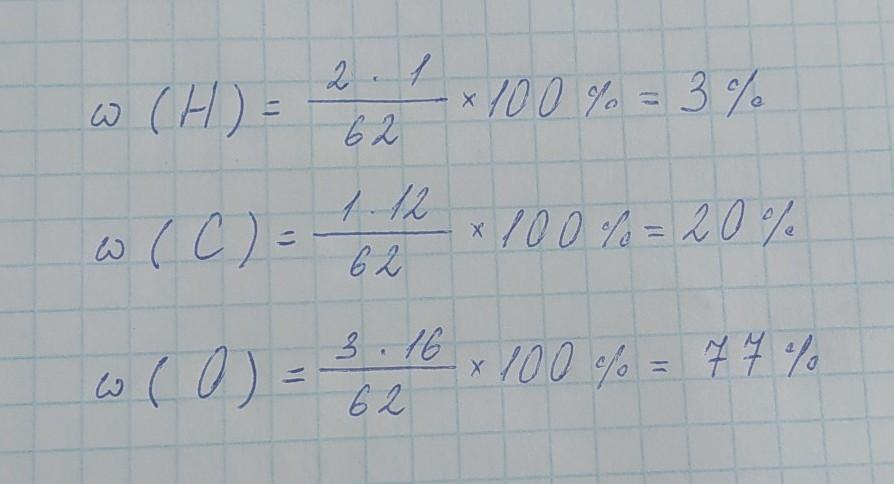 ω (H) = 2 · 1 / 62 × 100 % = 3 %
ω (C) = 1 · 12 / 62 × 100 % = 20 %
ω (O) = 3 · 16 / 62 × 100 % = 77 %